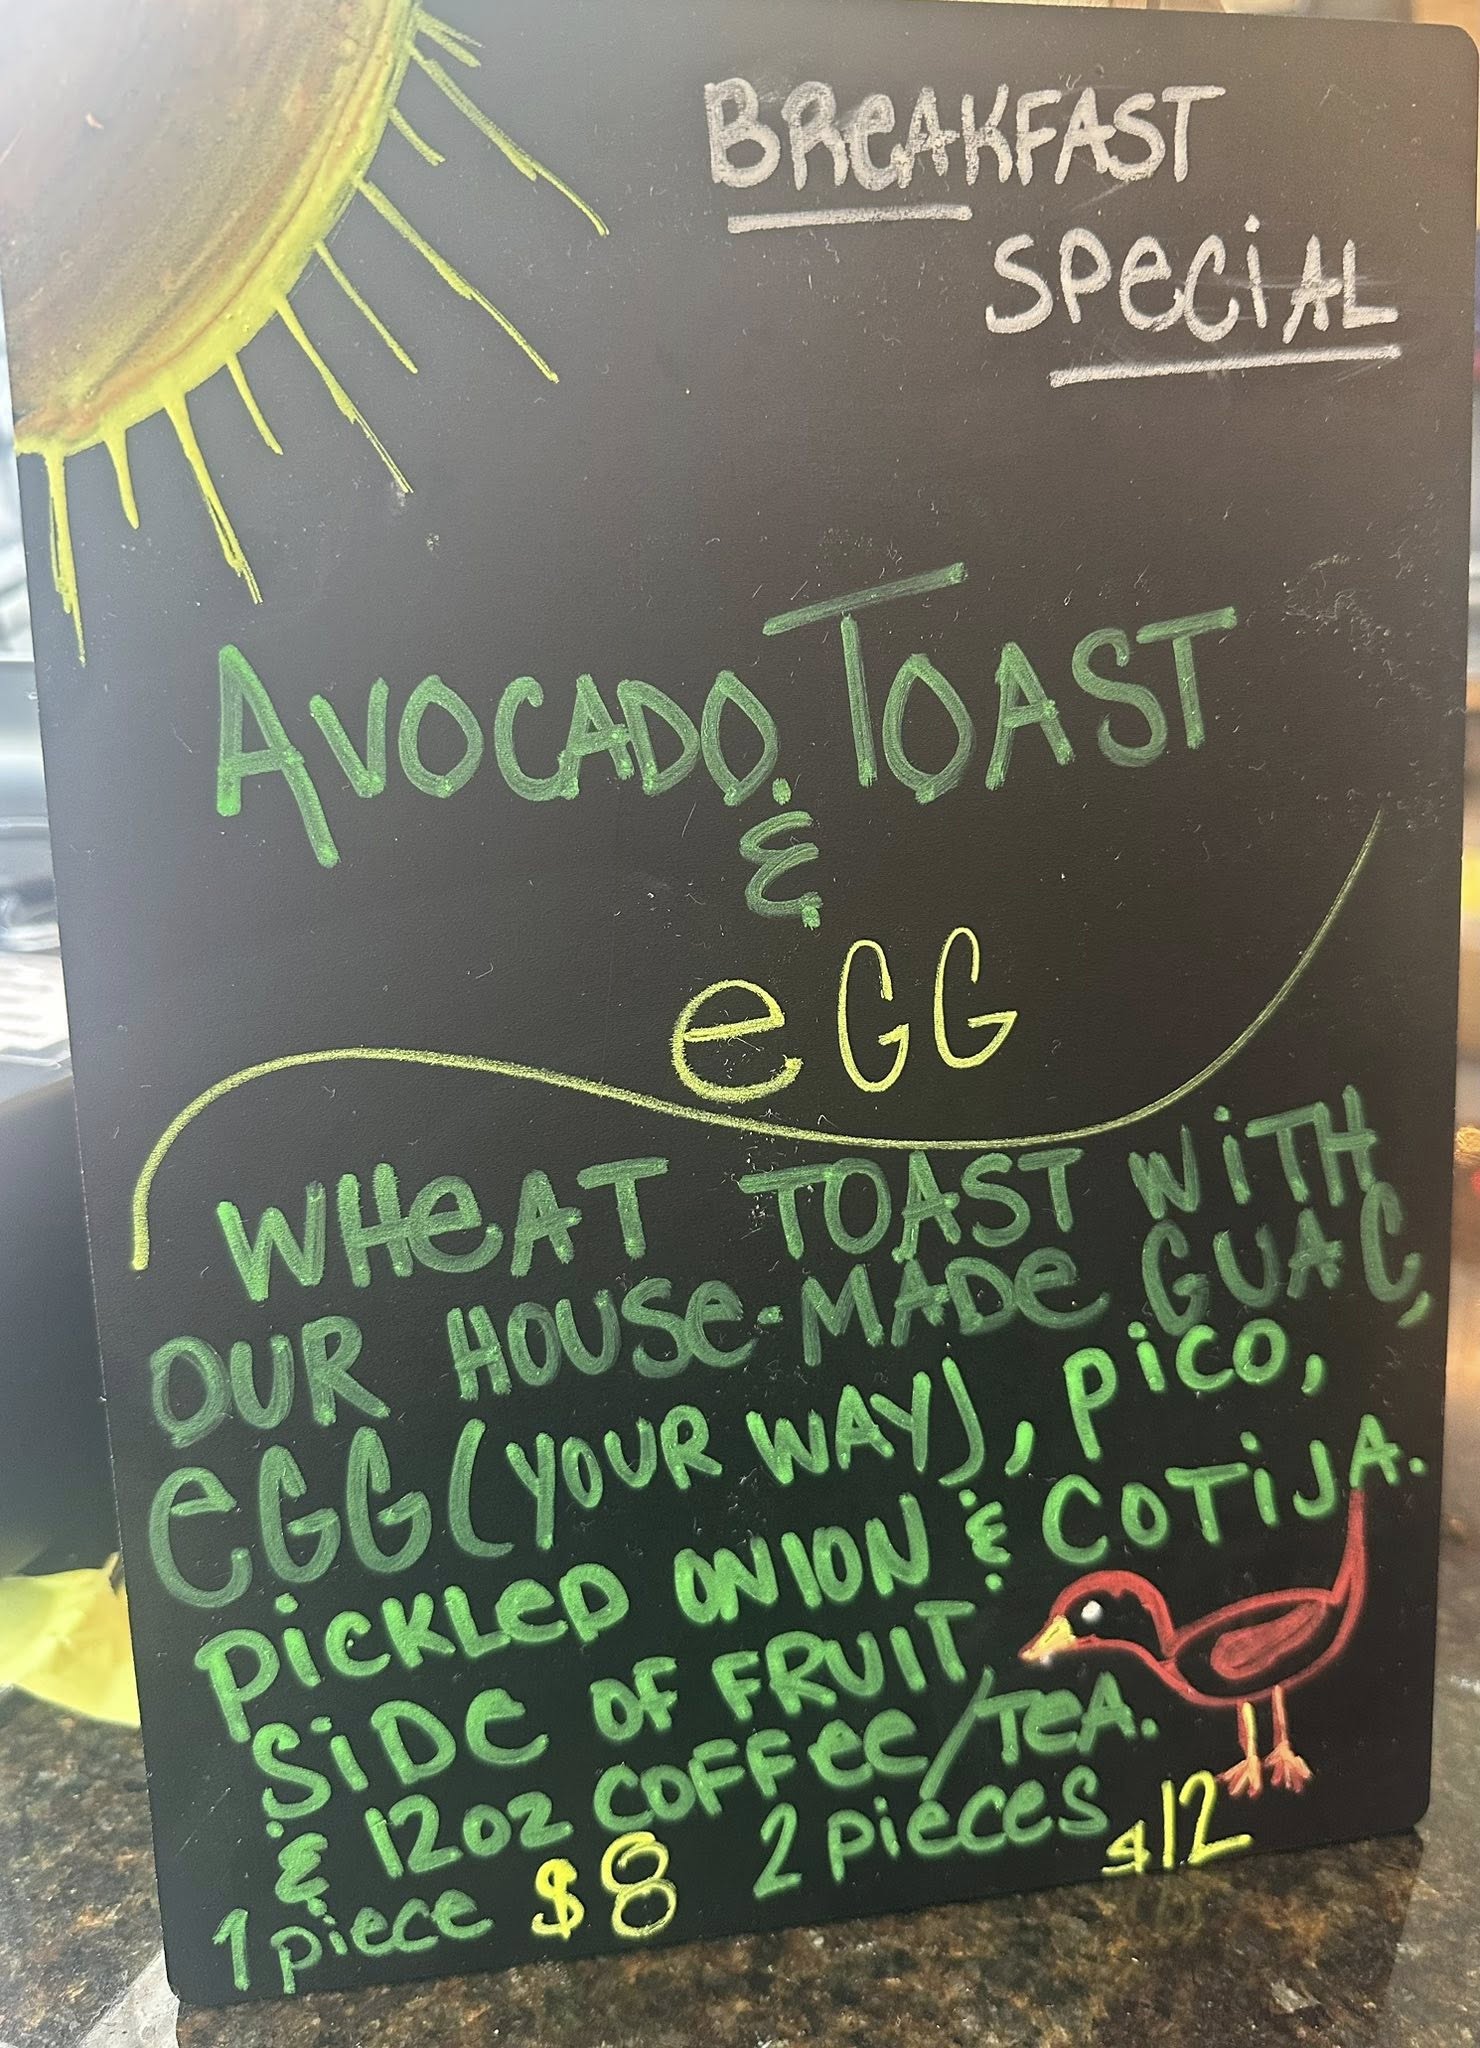 BREAKFAST
SPECIAL
AVOCADO TOAST
&
EGG
WHEAT TOAST WITH
OUR HOUSE-MADE GUAC,
EGG (YOUR WAY), PICO,
PICKLED ONION & COTIJA.
SIDE OF FRUIT
& 12oz COFFEE/TEA.
1 piece $8 2 pieces $12